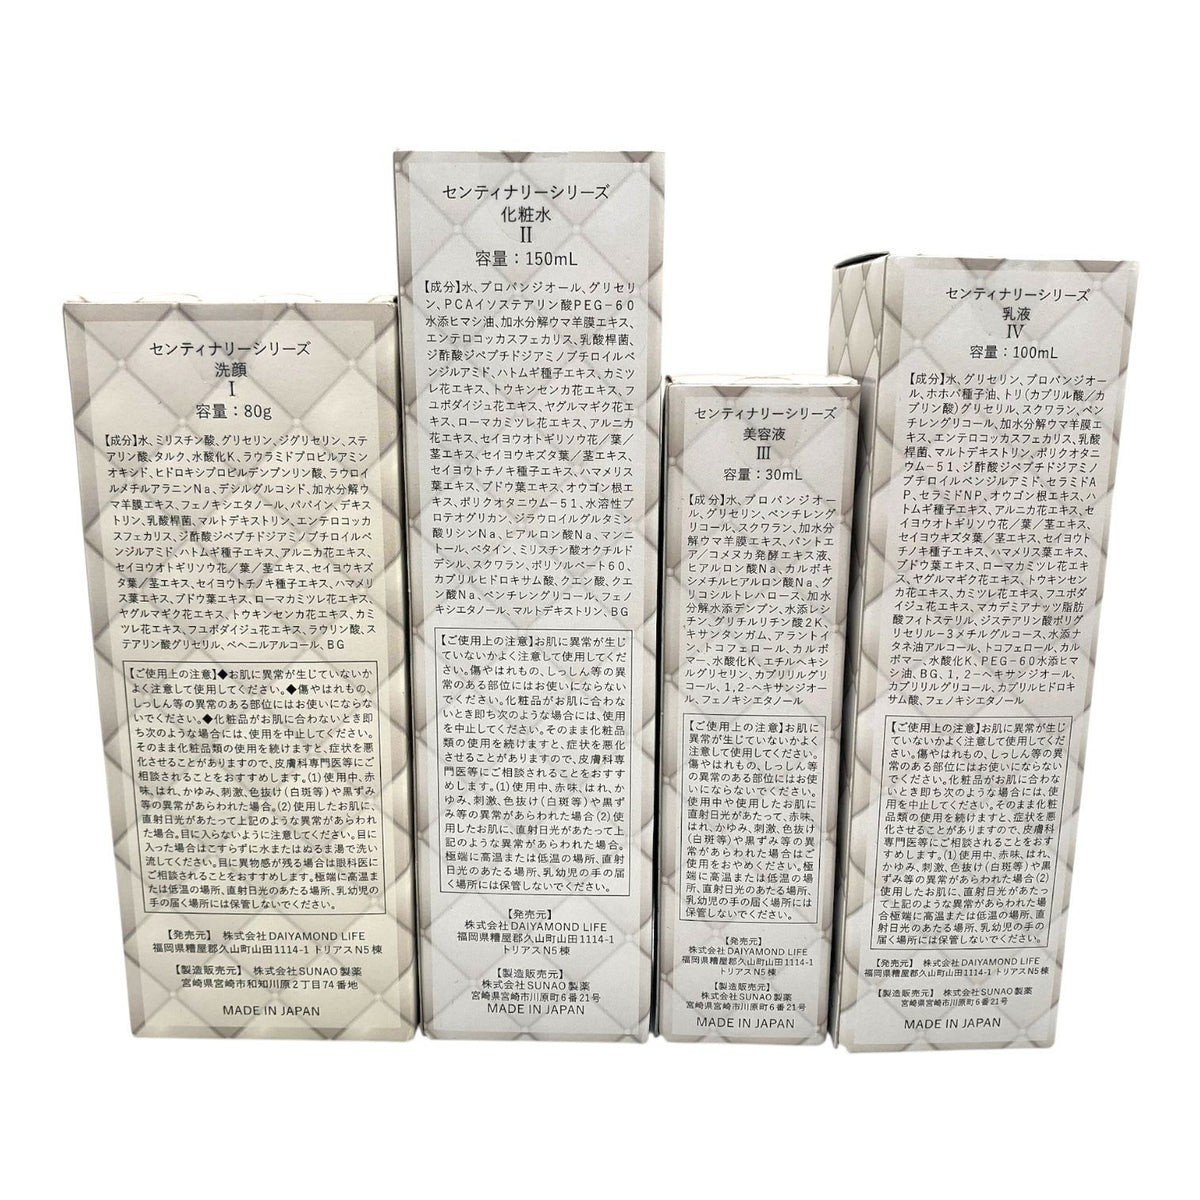 センティナリーシリーズ
洗顔
I
容量：80g
【成分】水、ミリスチン酸、グリセリン、ジグリセリン、ステ
アリン酸、タルク、水酸化K、ラウラミドプロピルアミン
オキシド、ヒドロキシプロピルデンプンリン酸、ラウロイ
ルメチルアラニンNa、デシルグルコシド、加水分解ウ
マ羊膜エキス、フェノキシエタノール、パパイン、デキス
トリン、乳酸桿菌、マルトデキストリン、エンテロコッカ
スフェカリス、ジ酢酸ジペプチドジアミノブチロイルベ
ンジルアミド、ハトムギ種子エキス、アルニカ花エキス、
セイヨウオトギリソウ花／葉／茎エキス、セイヨウキズ
タ葉／茎エキス、セイヨウトチノキ種子エキス、ハマメリ
ス葉エキス、ブドウ葉エキス、ローマカミツレ花エキス、
ヤグルマギク花エキス、トウキンセンカ花エキス、カミ
ツレ花エキス、フユボダイジュ花エキス、ラウリン酸、ス
テアリン酸グリセリル、ベヘニルアルコール、BG
【ご使用上の注意】◆お肌に異常が生じていないか
よく注意して使用してください。◆傷やはれもの、
しっしん等の異常のある部位にはお使いにならな
いでください。◆化粧品がお肌に合わないとき即
ち次のような場合には、使用を中止してください。
そのまま化粧品類の使用を続けますと、症状を悪
化させることがありますので、皮膚科専門医等にご
相談されることをおすすめします。(1)使用中、赤
味、はれ、かゆみ、刺激、色抜け(白斑等)や黒ずみ
等の異常があらわれた場合。(2)使用したお肌に、
直射日光があたって上記のような異常があらわれ
た場合。目に入らないように注意してください。目に
入った場合はこすらずに水またはぬるま湯で洗い
流してください。目に異物感が残る場合は眼科医に
ご相談されることをおすすめします。極端に高温ま
たは低温の場所、直射日光のあたる場所、乳幼児の
手の届く場所には保管しないでください。
【発売元】 株式会社DAIYAMOND LIFE
福岡県糟屋郡久山町山田1114-1 トリアスN5棟
【製造販売元】 株式会社SUNAO製薬
宮崎県宮崎市和知川原2丁目74番地
MADE IN JAPAN
センティナリーシリーズ
化粧水
II
容量：150mL
【成分】水、プロパンジオール、グリセリ
ン、PCAイソステアリン酸PEG-60
水添ヒマシ油、加水分解ウマ羊膜エキス、
エンテロコッカスフェカリス、乳酸桿菌、
ジ酢酸ジペプチドジアミノブチロイルベ
ンジルアミド、ハトムギ種子エキス、カミツ
レ花エキス、トウキンセンカ花エキス、フ
ユボダイジュ花エキス、ヤグルマギク花エ
キス、ローマカミツレ花エキス、アルニカ
花エキス、セイヨウオトギリソウ花／葉／
茎エキス、セイヨウキズタ葉／茎エキス、
セイヨウトチノキ種子エキス、ハマメリス
葉エキス、ブドウ葉エキス、オウゴン根エキ
ス、ポリクオタニウム-51、水溶性プ
ロテオグリカン、ジラウロイルグルタミン
酸リシンNa、ヒアルロン酸Na、マンニ
トール、ベタイン、ミリスチン酸オクチルド
デシル、スクワラン、ポリソルベート60、
カプリルヒドロキサム酸、クエン酸、クエ
ン酸Na、ペンチレングリコール、フェノ
キシエタノール、マルトデキストリン、BG
【ご使用上の注意】お肌に異常が生じ
ていないかよく注意して使用してくだ
さい。傷やはれもの、しっしん等の異
常のある部位にはお使いにならない
でください。化粧品がお肌に合わない
とき即ち次のような場合には、使用
を中止してください。そのまま化粧品
類の使用を続けますと、症状を悪化
させることがありますので、皮膚科専
門医等にご相談されることをおすす
めします。(1)使用中、赤味、はれ、か
ゆみ、刺激、色抜け(白斑等)や黒ず
み等の異常があらわれた場合(2)使
用したお肌に、直射日光があたって上
記のような異常があらわれた場合。
極端に高温または低温の場所、直射
日光のあたる場所、乳幼児の手の届
く場所には保管しないでください。
【発売元】
株式会社DAIYAMOND LIFE
福岡県糟屋郡久山町山田1114-1
トリアスN5棟
【製造販売元】
株式会社SUNAO製薬
宮崎県宮崎市川原町6番21号
MADE IN JAPAN
センティナリーシリーズ
美容液
III
容量：30mL
【成分】水、プロパンジオー
ル、グリセリン、ペンチレング
リコール、スクワラン、加水分
解ウマ羊膜エキス、パントエ
ア／コメヌカ発酵エキス液、
ヒアルロン酸Na、カルボキ
シメチルヒアルロン酸Na、グ
リコシルトレハロース、加水
分解水添デンプン、水添レシ
チン、グリチルリチン酸2K、
キサンタンガム、アラントイ
ン、トコフェロール、カルボ
マー、水酸化K、エチルヘキシ
ルグリセリン、カプリリルグリ
コール、1,2-ヘキサンジオー
ル、フェノキシエタノール
【ご使用上の注意】お肌に
異常が生じていないかよく
注意して使用してください。
傷やはれもの、しっしん等
の異常のある部位にはお使
いにならないでください。
使用中や使用したお肌に
直射日光があたって、赤味、
はれ、かゆみ、刺激、色抜け
(白斑等)や黒ずみ等の異
常があらわれた場合はご
使用をおやめください。極
端に高温または低温の場
所、直射日光のあたる場所、
乳幼児の手の届く場所には
保管しないでください。
【発売元】
株式会社DAIYAMOND LIFE
福岡県糟屋郡久山町山田1114-1
トリアスN5棟
【製造販売元】
株式会社SUNAO製薬
宮崎県宮崎市川原町6番21号
MADE IN JAPAN
センティナリーシリーズ
乳液
IV
容量：100mL
【成分】水、グリセリン、プロパンジオー
ル、ホホバ種子油、トリ(カプリル酸／カ
プリン酸)グリセリル、スクワラン、ペン
チレングリコール、加水分解ウマ羊膜エ
キス、エンテロコッカスフェカリス、乳酸
桿菌、マルトデキストリン、ポリクオタニ
ウム-51、ジ酢酸ジペプチドジアミノ
ブチロイルベンジルアミド、セラミドA
P、セラミドNP、オウゴン根エキス、ハ
トムギ種子エキス、アルニカ花エキス、セ
イヨウオトギリソウ花／葉／茎エキス、
セイヨウキズタ葉／茎エキス、セイヨウト
チノキ種子エキス、ハマメリス葉エキス、
ブドウ葉エキス、ローマカミツレ花エキス、
ヤグルマギク花エキス、トウキンセンカ
花エキス、カミツレ花エキス、フユボダ
イジュ花エキス、マカデミアナッツ脂肪
酸フィトステリル、ジステアリン酸ポリグ
リセリル-3メチルグルコース、水添ナ
タネ油アルコール、トコフェロール、カル
ボマー、水酸化K、PEG-60水添ヒマ
シ油、BG、1,2-ヘキサンジオール、
カプリリルグリコール、カプリルヒドロキ
サム酸、フェノキシエタノール
【ご使用上の注意】お肌に異常が生じ
ていないかよく注意して使用してくだ
さい。傷やはれもの、しっしん等の異
常のある部位にはお使いにならない
でください。化粧品がお肌に合わな
いとき即ち次のような場合には、使用
を中止してください。そのまま化粧
品類の使用を続けますと、症状を悪
化させることがありますので、皮膚科
専門医等にご相談されることをおすす
めします。(1)使用中、赤味、はれ、
かゆみ、刺激、色抜け(白斑等)や黒
ずみ等の異常があらわれた場合(2)
使用したお肌に、直射日光があたっ
て上記のような異常があらわれた場
合極端に高温または低温の場所、直
射日光のあたる場所、乳幼児の手の
届く場所には保管しないでください。
【発売元】 株式会社DAIYAMOND LIFE
福岡県糟屋郡久山町山田1114-1 トリアスN5棟
【製造販売元】 株式会社SUNAO製薬
宮崎県宮崎市川原町6番21号
MADE IN JAPAN